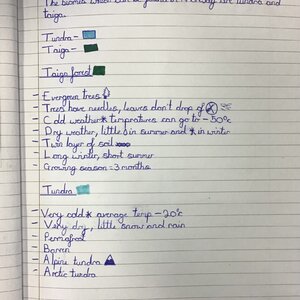 The biomes which can be found in Norway are tundra and
taiga.
Tundra-
Taiga-
Taiga forest
- Evergreen trees
- Trees have needles, leaves don't drop of
- Cold weather* tempratures can go to -50°c
- Dry weather, little in summer and * in winter
- Two layer of soil
- Long winter, short summer
- Growing season = 3 months
Tundra
- Very cold * average temp -20°c
- Very dry, little snow and rain
- Permafrost
- Barren
- Alpine tundra
- Arctic tundra